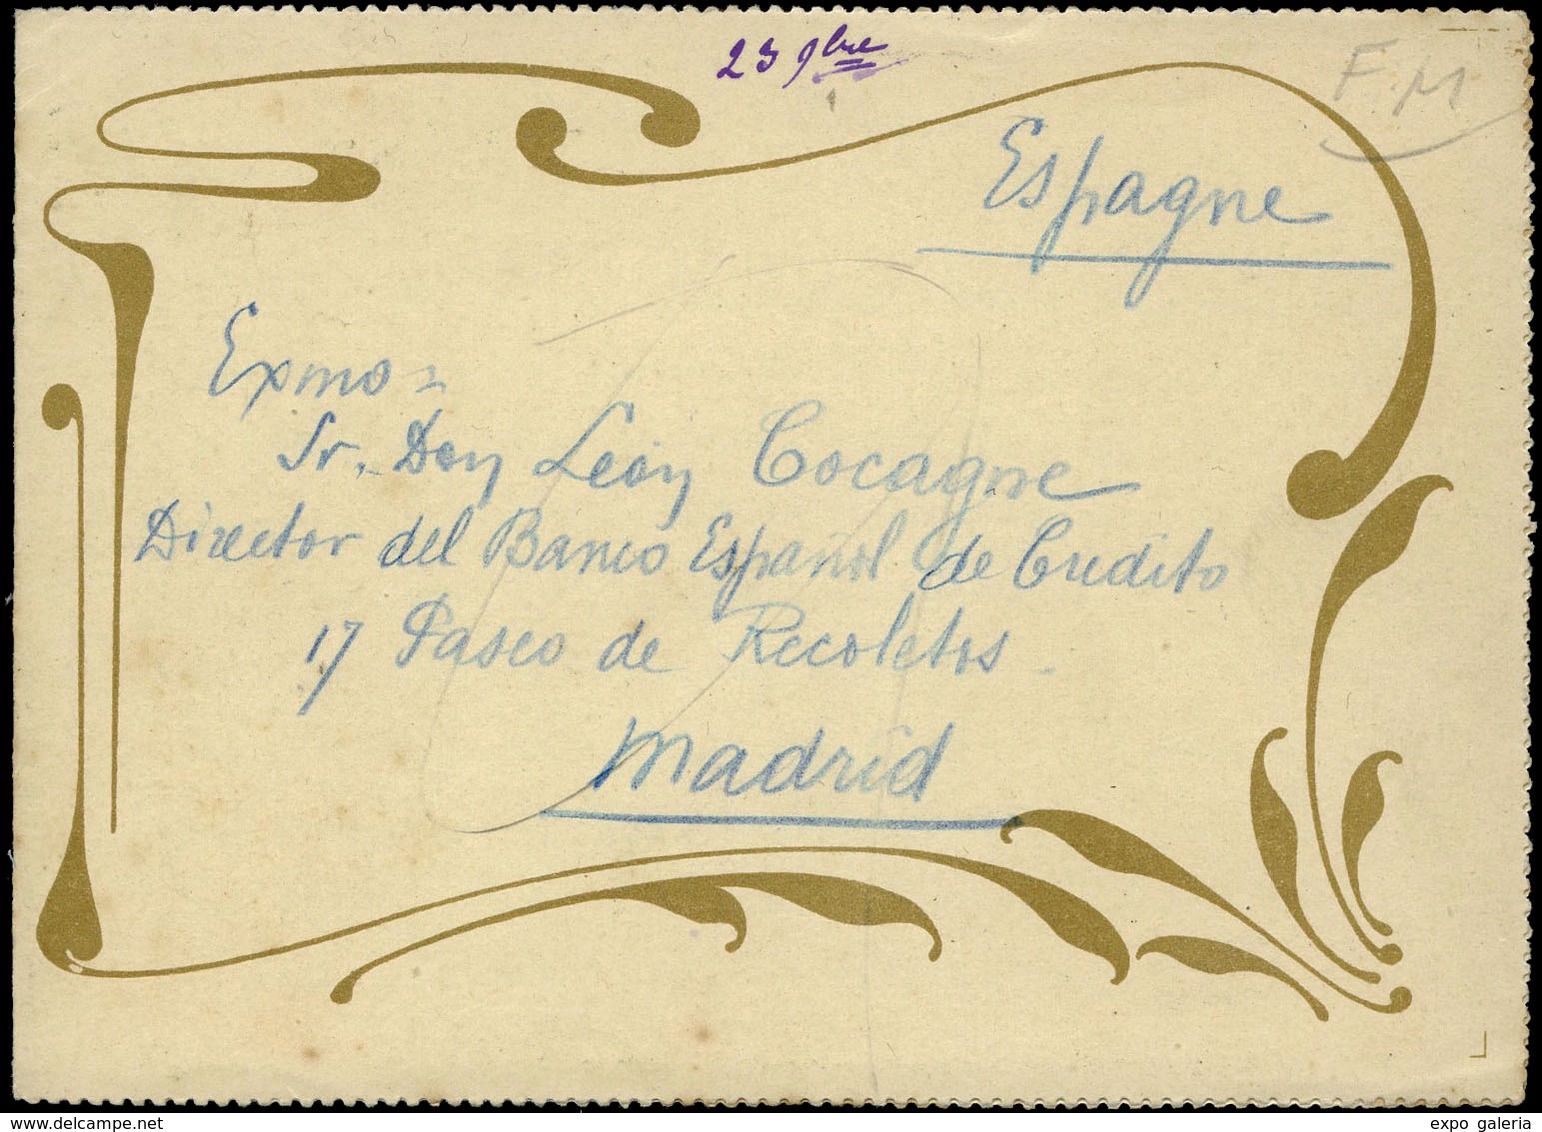 23 9bre
F.M
Espagne
Exmo =
Sr. Don León Cocagne
Director del Banco Español de Crédito
17 Paseo de Recoletos
Madrid
expo galeria
delcampe.net